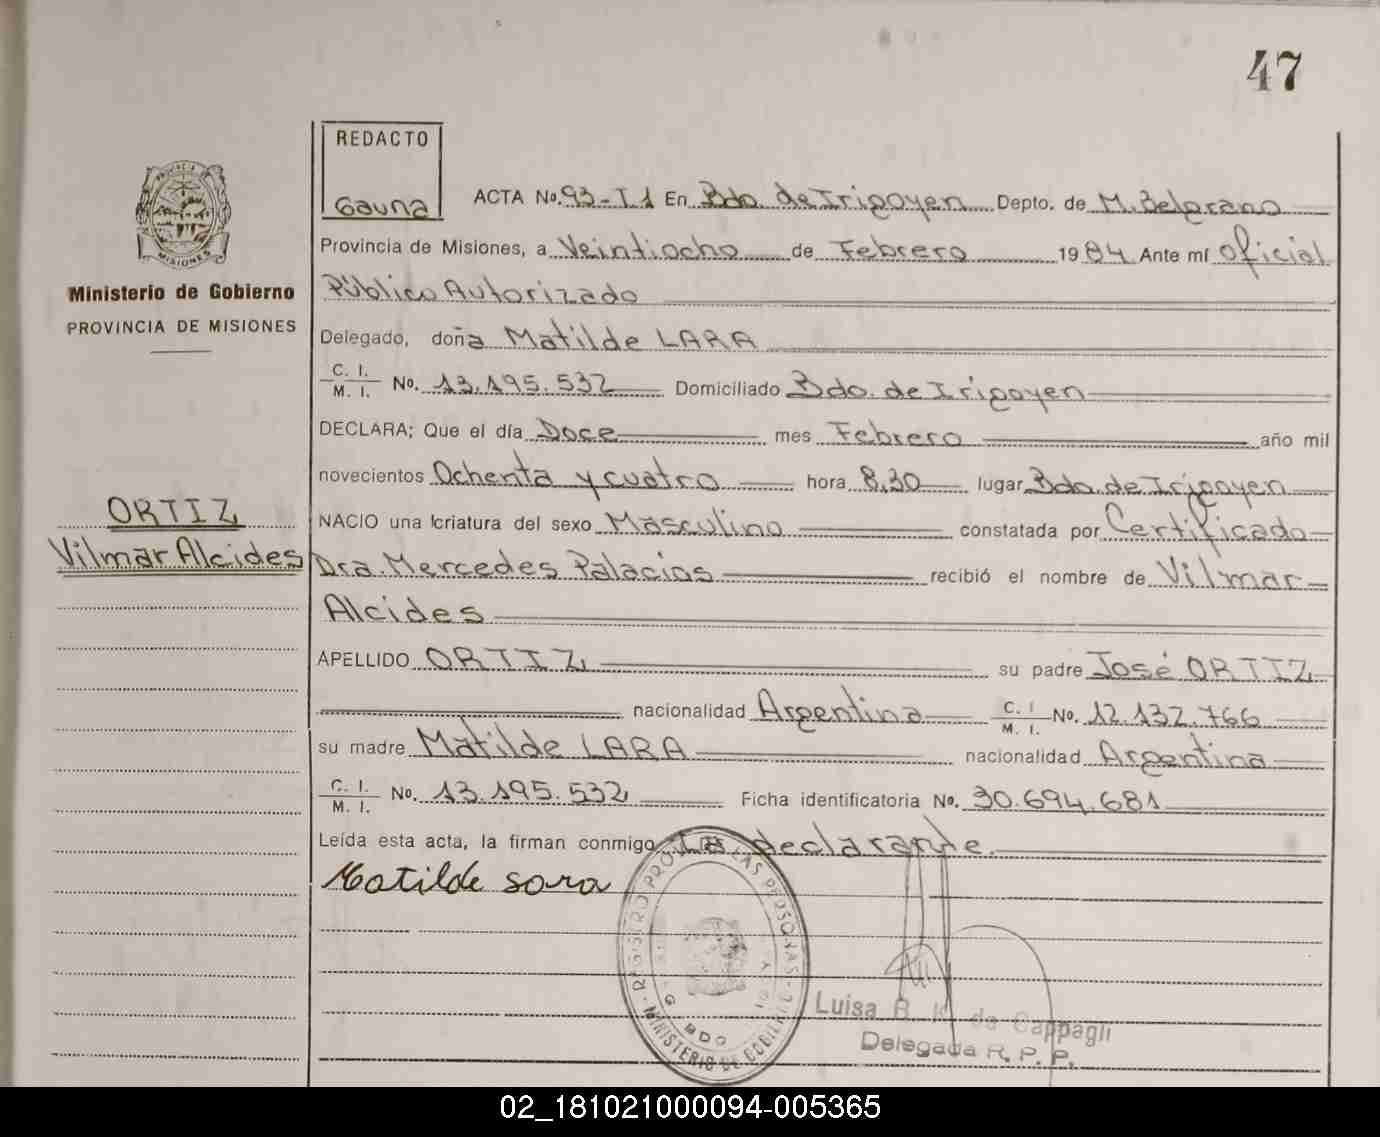 47
REDACTO
Gauna
ACTA No. 93-T1 En Bdo. de Irigoyen Depto. de M. Belgrano
Provincia de Misiones, a Veintiocho de Febrero 1984 Ante mí Oficial
Público Autorizado
Delegado, doña Matilde LARA
C. I.
M. I. No. 13.195.532 Domiciliado Bdo. de Irigoyen
DECLARA; Que el día Doce mes Febrero año mil
novecientos Ochenta y cuatro hora 8,30 lugar Bdo. de Irigoyen
NACIO una criatura del sexo Masculino constatada por Certificado
Dra. Mercedes Palacios recibió el nombre de Vilmar
Alcides
APELLIDO ORTIZ su padre José ORTIZ
nacionalidad Argentina C. I. M. I. No. 12.132.766
su madre Matilde LARA nacionalidad Argentina
C. I.
M. I. No. 13.195.532 Ficha identificatoria No. 30.694.681
Leída esta acta, la firman conmigo La declarante.
Matilde Sara
PROVINCIA DE
MISIONES
Ministerio de Gobierno
PROVINCIA DE MISIONES
ORTIZ
Vilmar Alcides
REGISTRO PROV. DE LAS PERSONAS
MINISTERIO DE GOBIERNO
Luisa B. K. de Cappagli
Delegada R. P. P.
02_181021000094-005365